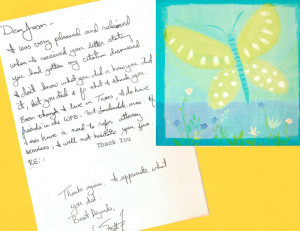 Dear Jason -
I was very pleased and relieved
when I received your letter stating
you had gotten my citation dismissed
I don't know what you did or how you did
it, but you did & for that I thank you
Even though I live in Texas, I do have
friends in the WPB. and
I ever have a need to refer attorney
services, I will not hesitate you firm
THANK YOU
RE:
Thanks again. I appreciate what
you did.
Best Regards,